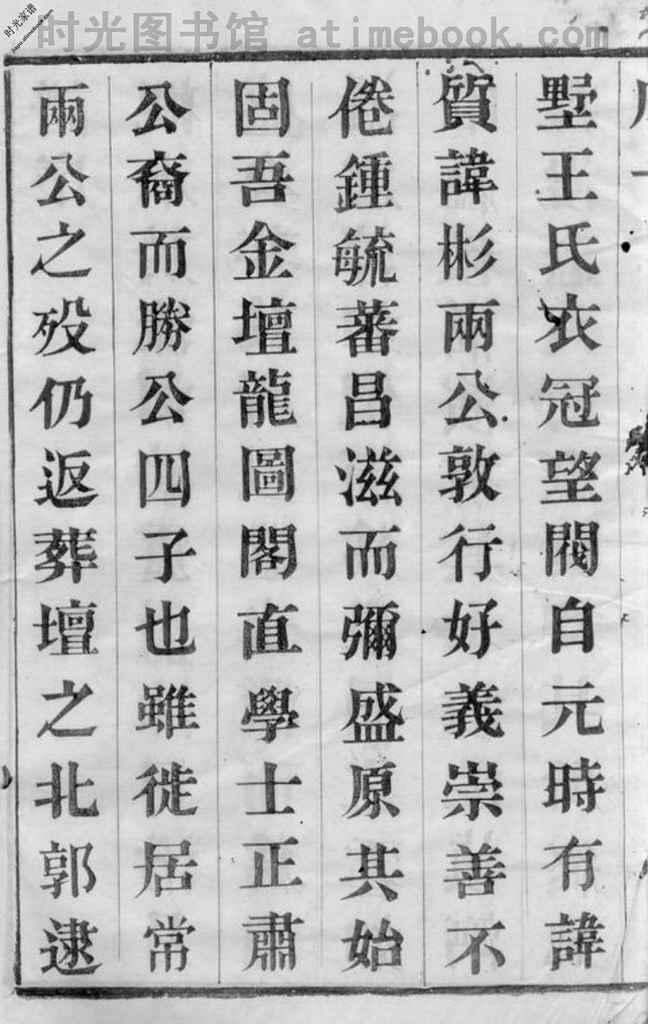 时光图书馆 atimebook.com
时光家谱
www.atimebook.com
墅王氏衣冠望閥自元時有諱
質諱彬兩公敦行好義崇善不
倦鍾毓蕃昌滋而彌盛原其始
固吾金壇龍圖閣直學士正肅
公裔而勝公四子也雖徙居常
兩公之歿仍返葬壇之北郭逮